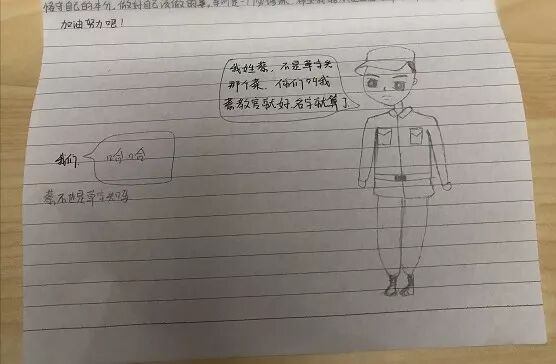 恪守自己的本分,做好自己该做的事,
加油努力吧!
我姓蔡,不是草字头
那个菜,你们叫我
蔡教官就好,名字就算了
我们
哈哈
蔡不也是草字头吗